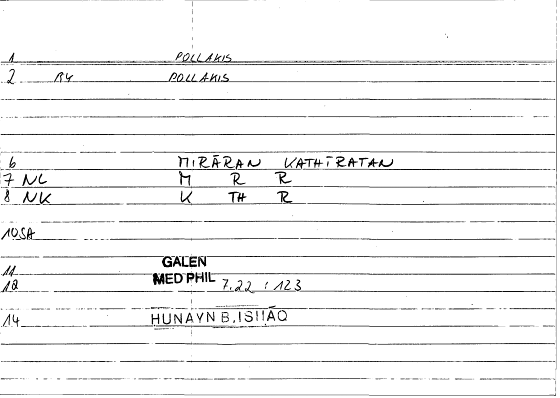 1 POLLAKIS
2 RY POLLAKIS
6 MIRĀRAN KATHĪRATAN
7 NL M R R
8 NK K TH R
10SA
11 GALEN
12 MED PHIL 7.22 : 123
14 HUNAYN B.ISHĀQ